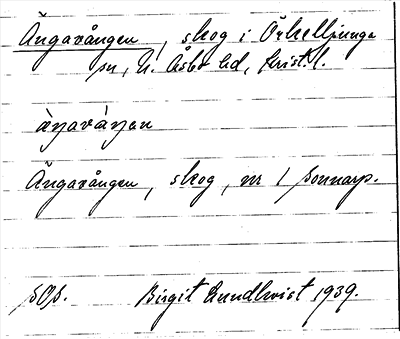 Ängavången, skog i Örkelljunga
sn, N. Åsbo hd, Krist. l.
Ängavången, skog, nr 1 Sonnarp.
SOS. Birgit Lundkvist 1939.